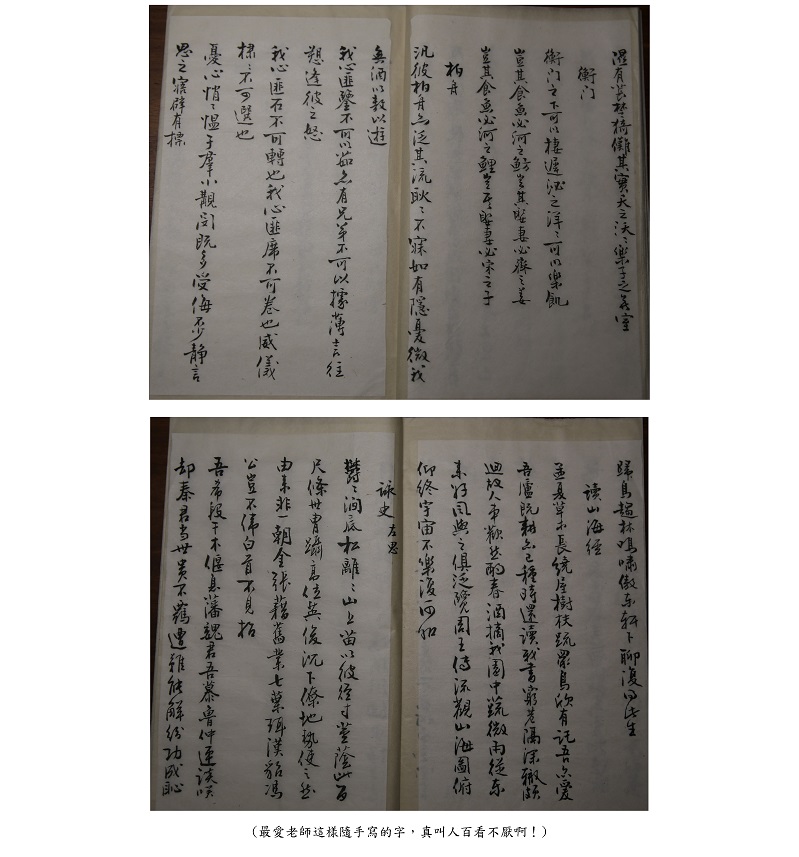 隰有萇楚猗儺其實夭之沃〻樂子之無室
衡门
衡门之下可以棲遲泌之洋〻可以樂飢
豈其食魚必河之魴豈其娶妻必齊之姜
豈其食魚必河之鯉豈其娶妻必宋之子
柏舟
汎彼柏舟亦泛其流耿〻不寐如有隱憂微我
無酒以敖以遊
我心匪鑒不可以茹亦有兄弟不可以據薄言往
愬逢彼之怒
我心匪石不可轉也我心匪席不可卷也威儀
棣〻不可選也
憂心悄〻慍于羣小覯閔既多受侮不少靜言
思之寤辟有摽
歸鳥趨林鳴嘯傲東軒下聊復得此生
讀山海經
孟夏草木長繞屋樹扶疏眾鳥欣有託吾亦愛
吾廬既耕亦已種時還讀我書窮巷隔深轍頗
迴故人車歡然酌春酒摘我園中蔬微雨從東
來好风與之俱泛覽周王傳流觀山海圖俯
仰終宇宙不樂復何如
詠史 左思
鬱〻澗底松離〻山上苗以彼徑寸莖蔭此百
尺條世冑躡高位英俊沉下僚地勢使之然
由来非一朝金張藉舊業七葉珥漢貂馮
公豈不偉白首不見招
吾希段干木偃息藩魏君吾慕魯仲連談笑
却秦君當世貴不羈遭難能解紛功成恥
（最愛老師這樣隨手寫的字，真叫人百看不厭啊！）